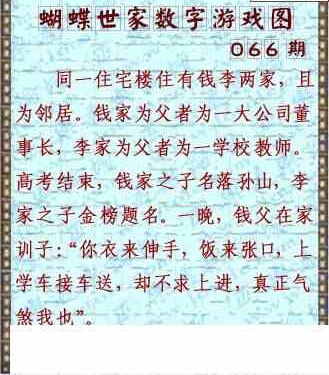 蝴蝶世家数字游戏图
066 期
同一住宅楼住有钱李两家，且
为邻居。钱家为父者为一大公司董
事长，李家为父者为一学校教师。
高考结束，钱家之子名落孙山，李
家之子金榜题名。一晚，钱父在家
训子：“你衣来伸手，饭来张口，上
学车接车送，却不求上进，真正气
煞我也”。